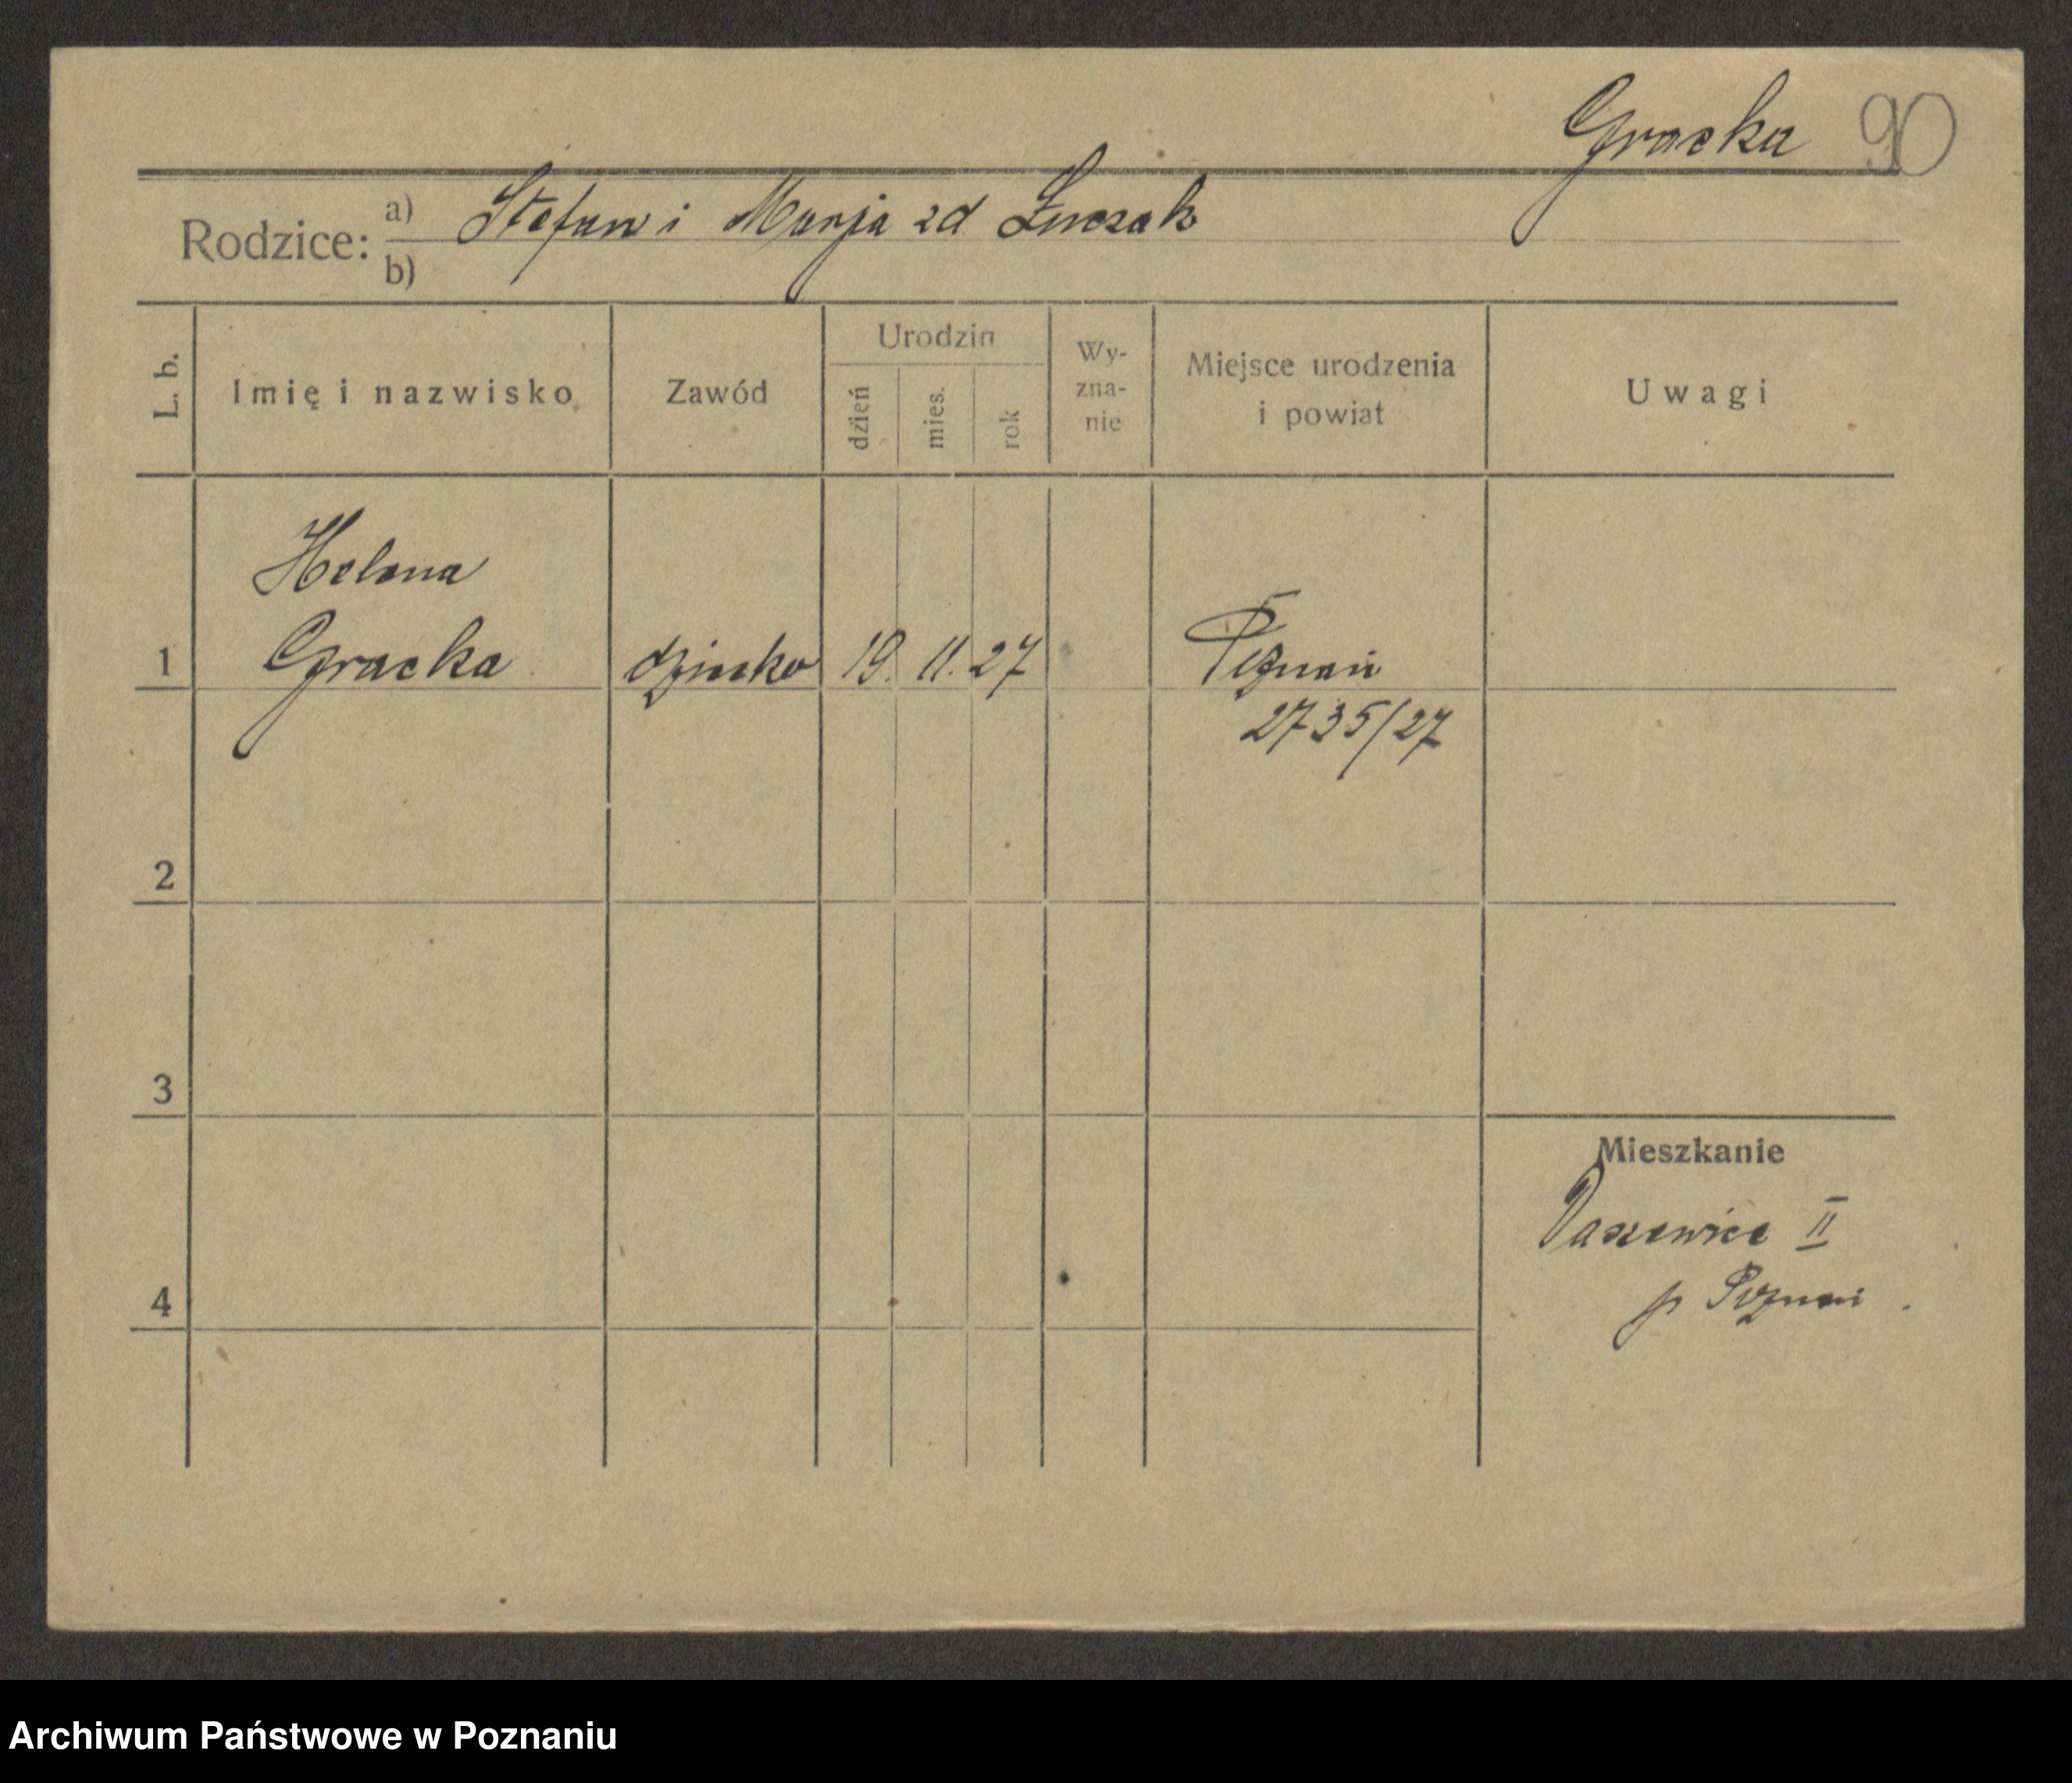 Gracka 90
Rodzice: a) Stefan i Marja zd Łuczak
b)
L. b. Imię i nazwisko Zawód Urodzin dzień mies. rok Wy-zna-nie Miejsce urodzenia i powiat Uwagi
Helena
1 Gracka dziecko 19. 11. 27 Poznań
2735/27
2
3
Mieszkanie
II
4 p Poznań
Archiwum Państwowe w Poznaniu